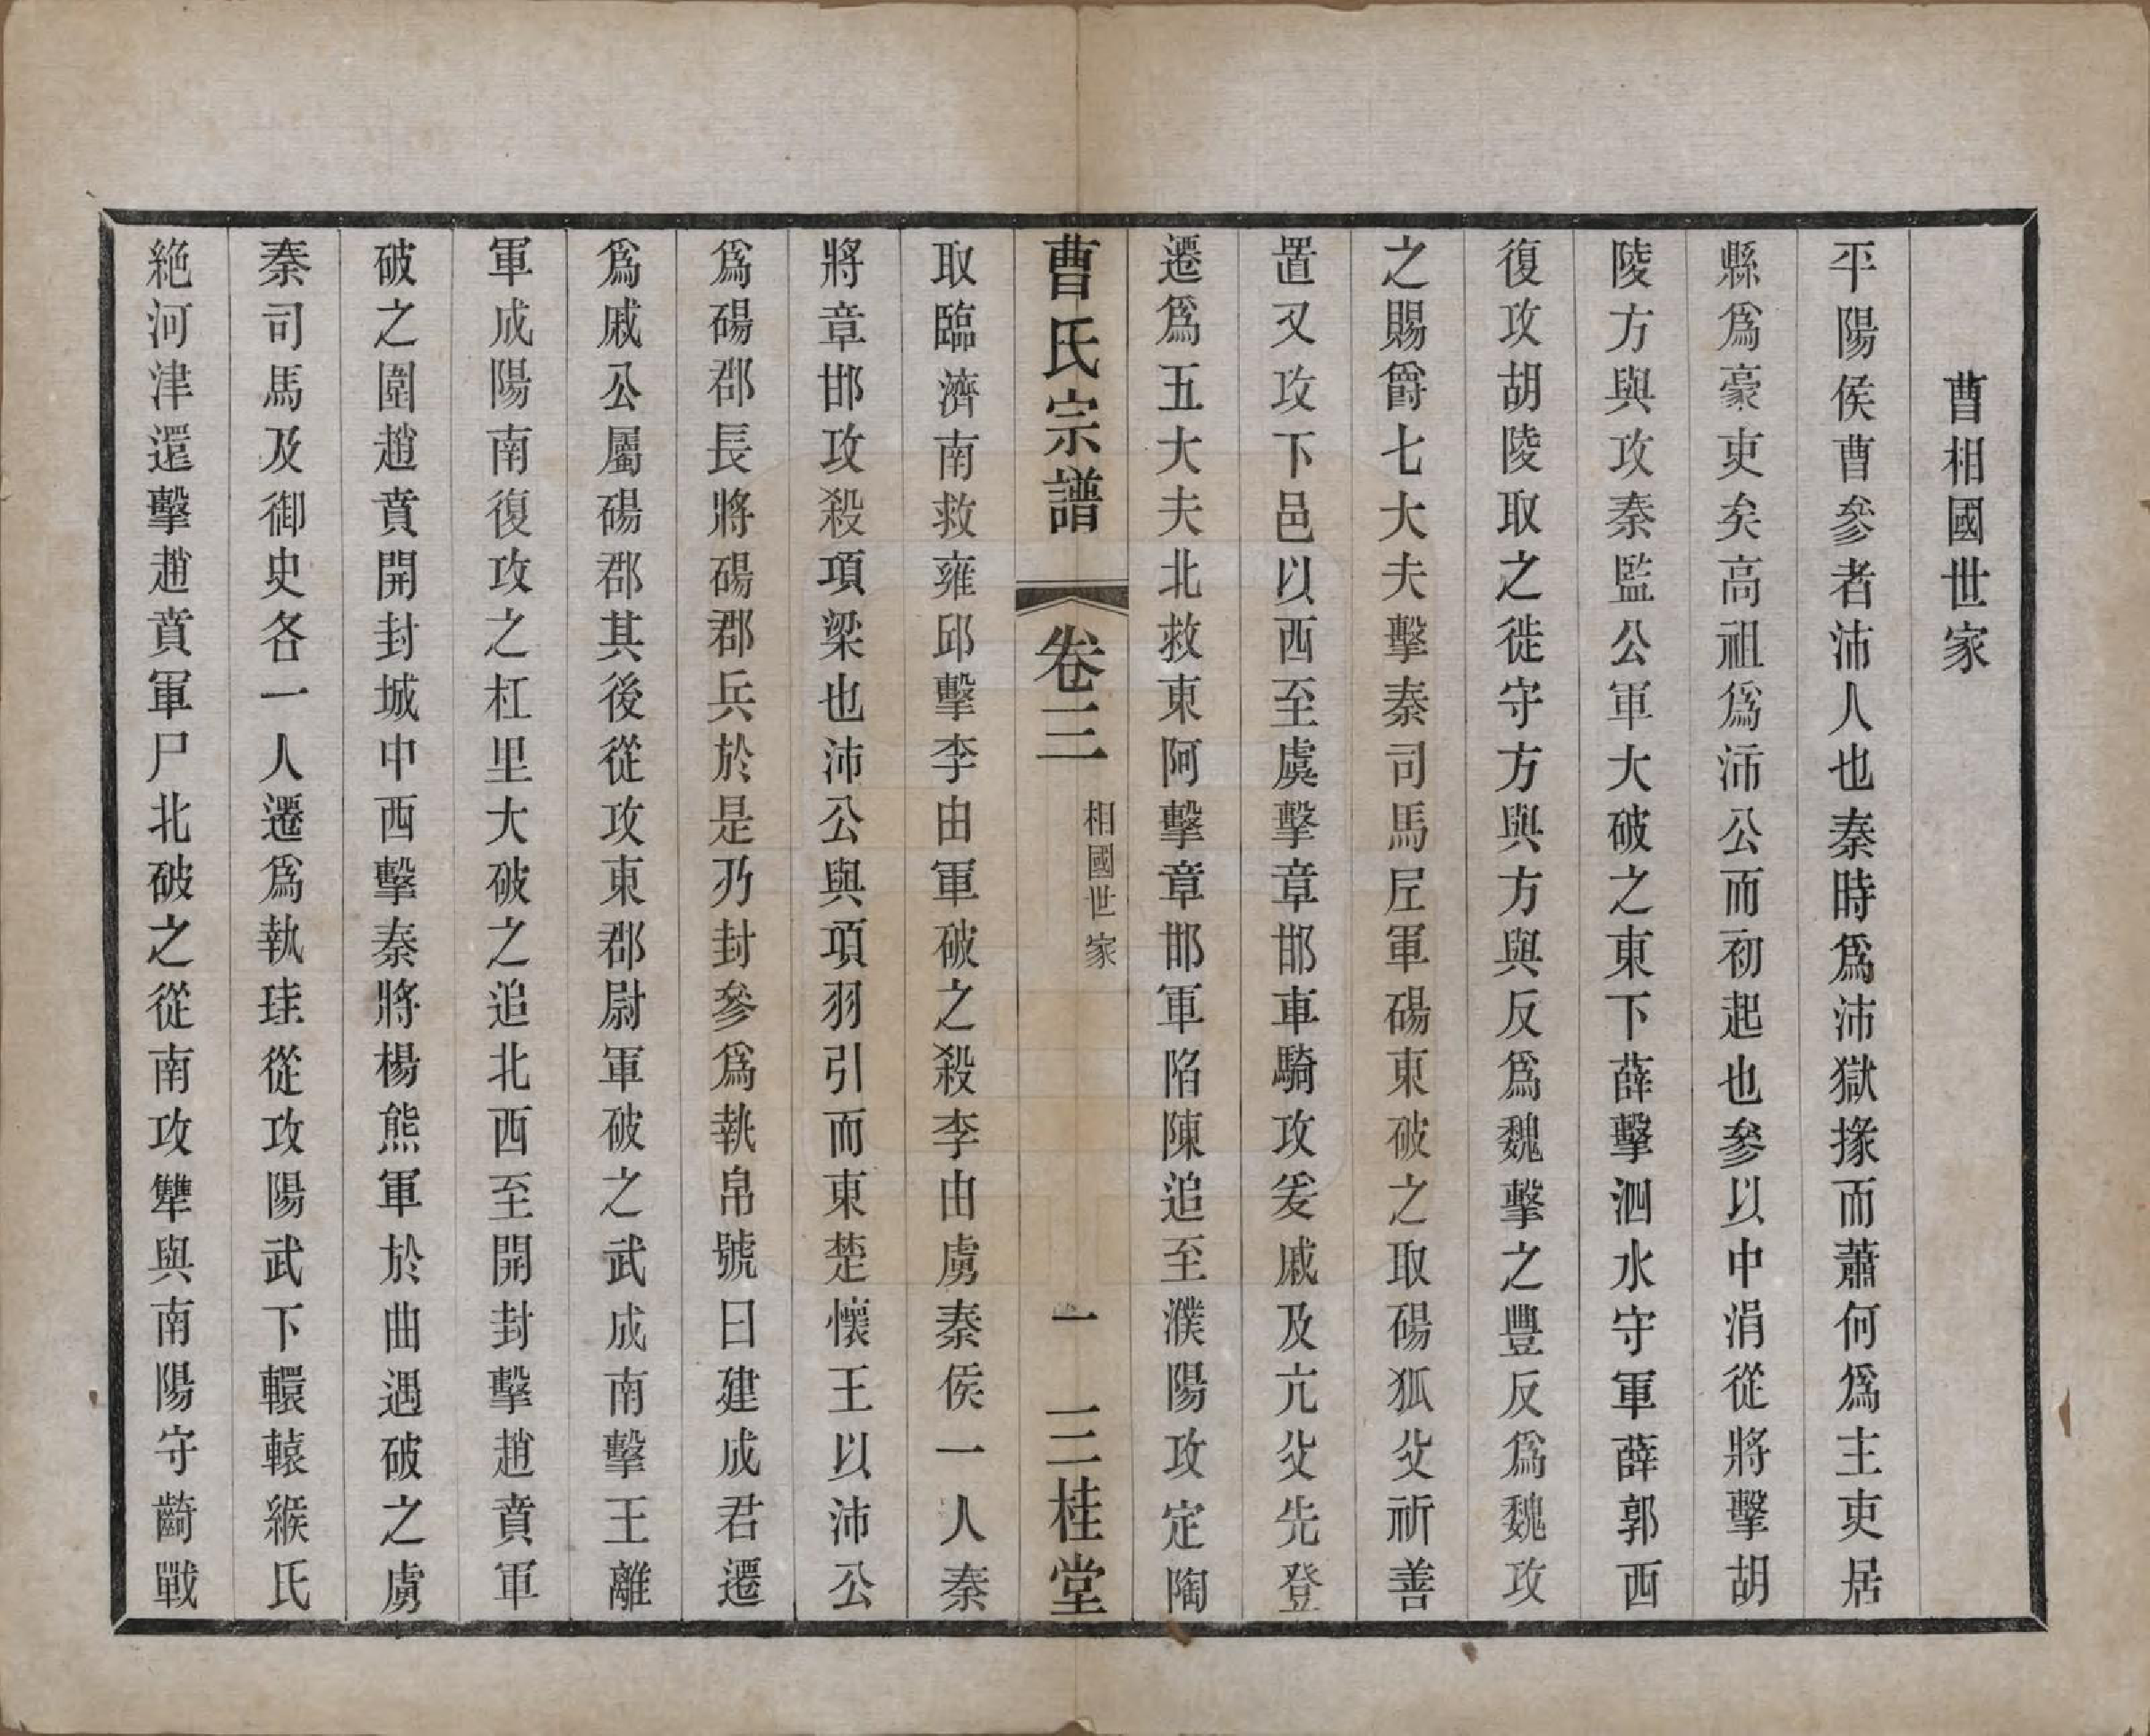 曹相國世家
平陽侯曹參者沛人也秦時爲沛獄掾而蕭何爲主吏居
縣爲豪吏矣高祖爲沛公而初起也參以中涓從將擊胡
陵方與攻秦監公軍大破之東下薛擊泗水守軍薛郭西
復攻胡陵取之徙守方與方與反爲魏擊之豐反爲魏攻
之賜爵七大夫擊秦司馬𡰥軍碭東破之取碭狐父祈善
置又攻下邑以西至虞擊章邯車騎攻爰戚及亢父先登
遷爲五大夫北救東阿擊章邯軍陷陳追至濮陽攻定陶
曹氏宗譜 卷三 相國世家 一 三桂堂
取臨濟南救雍邱擊李由軍破之殺李由虜秦侯一人秦
將章邯攻殺項梁也沛公與項羽引而東楚懷王以沛公
爲碭郡長將碭郡兵於是乃封參爲執帛號曰建成君遷
爲戚公屬碭郡其後從攻東郡尉軍破之武成南擊王離
軍成陽南復攻之杠里大破之追北西至開封擊趙賁軍
破之圍趙賁開封城中西擊秦將楊熊軍於曲遇破之虜
秦司馬及御史各一人遷爲執珪從攻陽武下轘轅緱氏
絶河津還擊趙賁軍尸北破之從南攻犨與南陽守齮戰